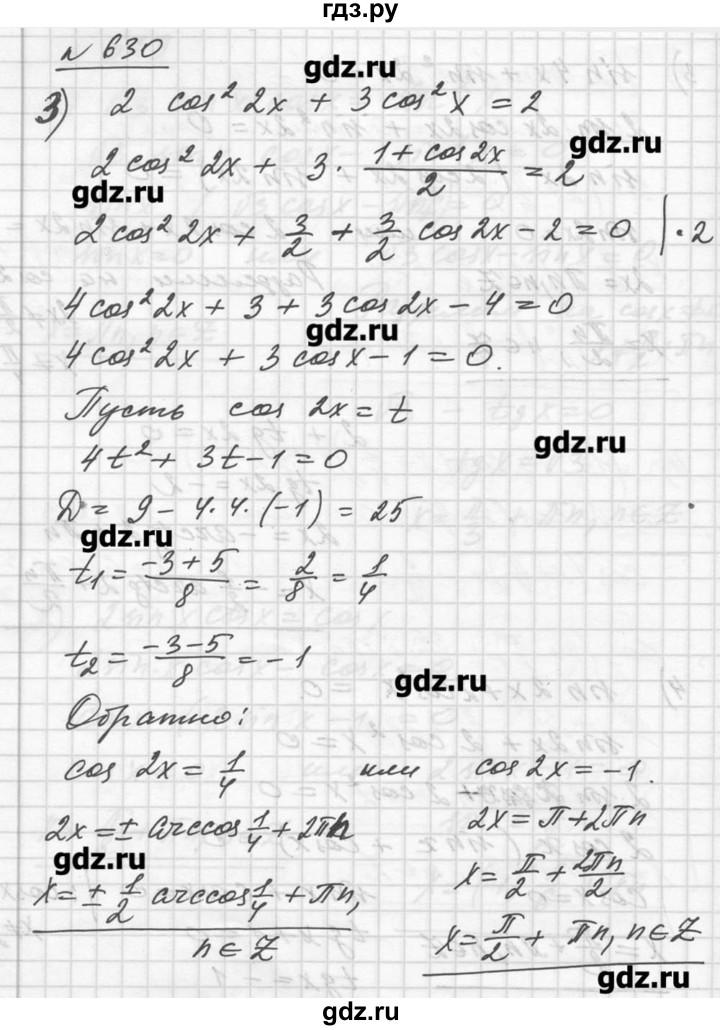 гдз.ру
N 630
gdz.ru
3) 2 cos² 2x + 3 cos² x = 2
gdz.ru
2 cos² 2x + 3 · (1 + cos 2x)/2 = 2
gdz.ru
2 cos² 2x + 3/2 + 3/2 cos 2x - 2 = 0 | · 2
4 cos² 2x + 3 + 3 cos 2x - 4 = 0
gdz.ru
4 cos² 2x + 3 cos x - 1 = 0.
Пусть cos 2x = t
gdz.ru
4t² + 3t - 1 = 0
Д = 9 - 4 · 4 · (-1) = 25
gdz.ru
t₁ = (-3 + 5)/8 = 2/8 = 1/4
t₂ = (-3 - 5)/8 = -1
gdz.ru
Обратно:
cos 2x = 1/4 или cos 2x = -1.
2x = ± arccos 1/4 + 2πn
2x = π + 2πn
gdz.ru
x = π/2 + 2πn/2
x = ± 1/2 arccos 1/4 + πn,
n ∈ Z
x = π/2 + πn, n ∈ Z
gdz.ru
gdz.ru